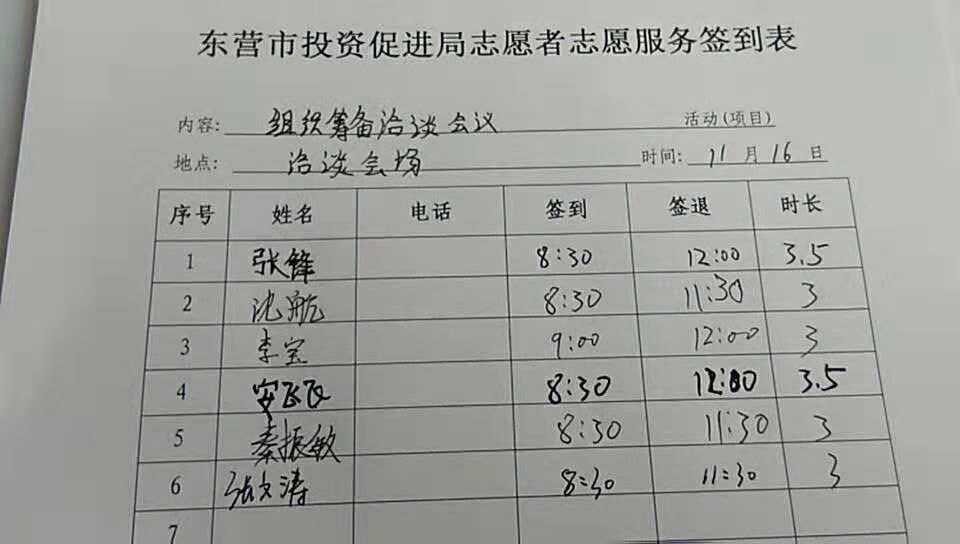 东营市投资促进局志愿者志愿服务签到表
内容: 组织筹备洽谈会议 活动(项目)
地点: 洽谈会场 时间: 11 月 16 日
序号 姓名 电话 签到 签退 时长
1 张锋 8:30 12:00 3.5
2 沈航 8:30 11:30 3
3 李宝 9:00 12:00 3
4 安飞飞 8:30 12:00 3.5
5 秦振敏 8:30 11:30 3
6 张文涛 8:30 11:30 3
7